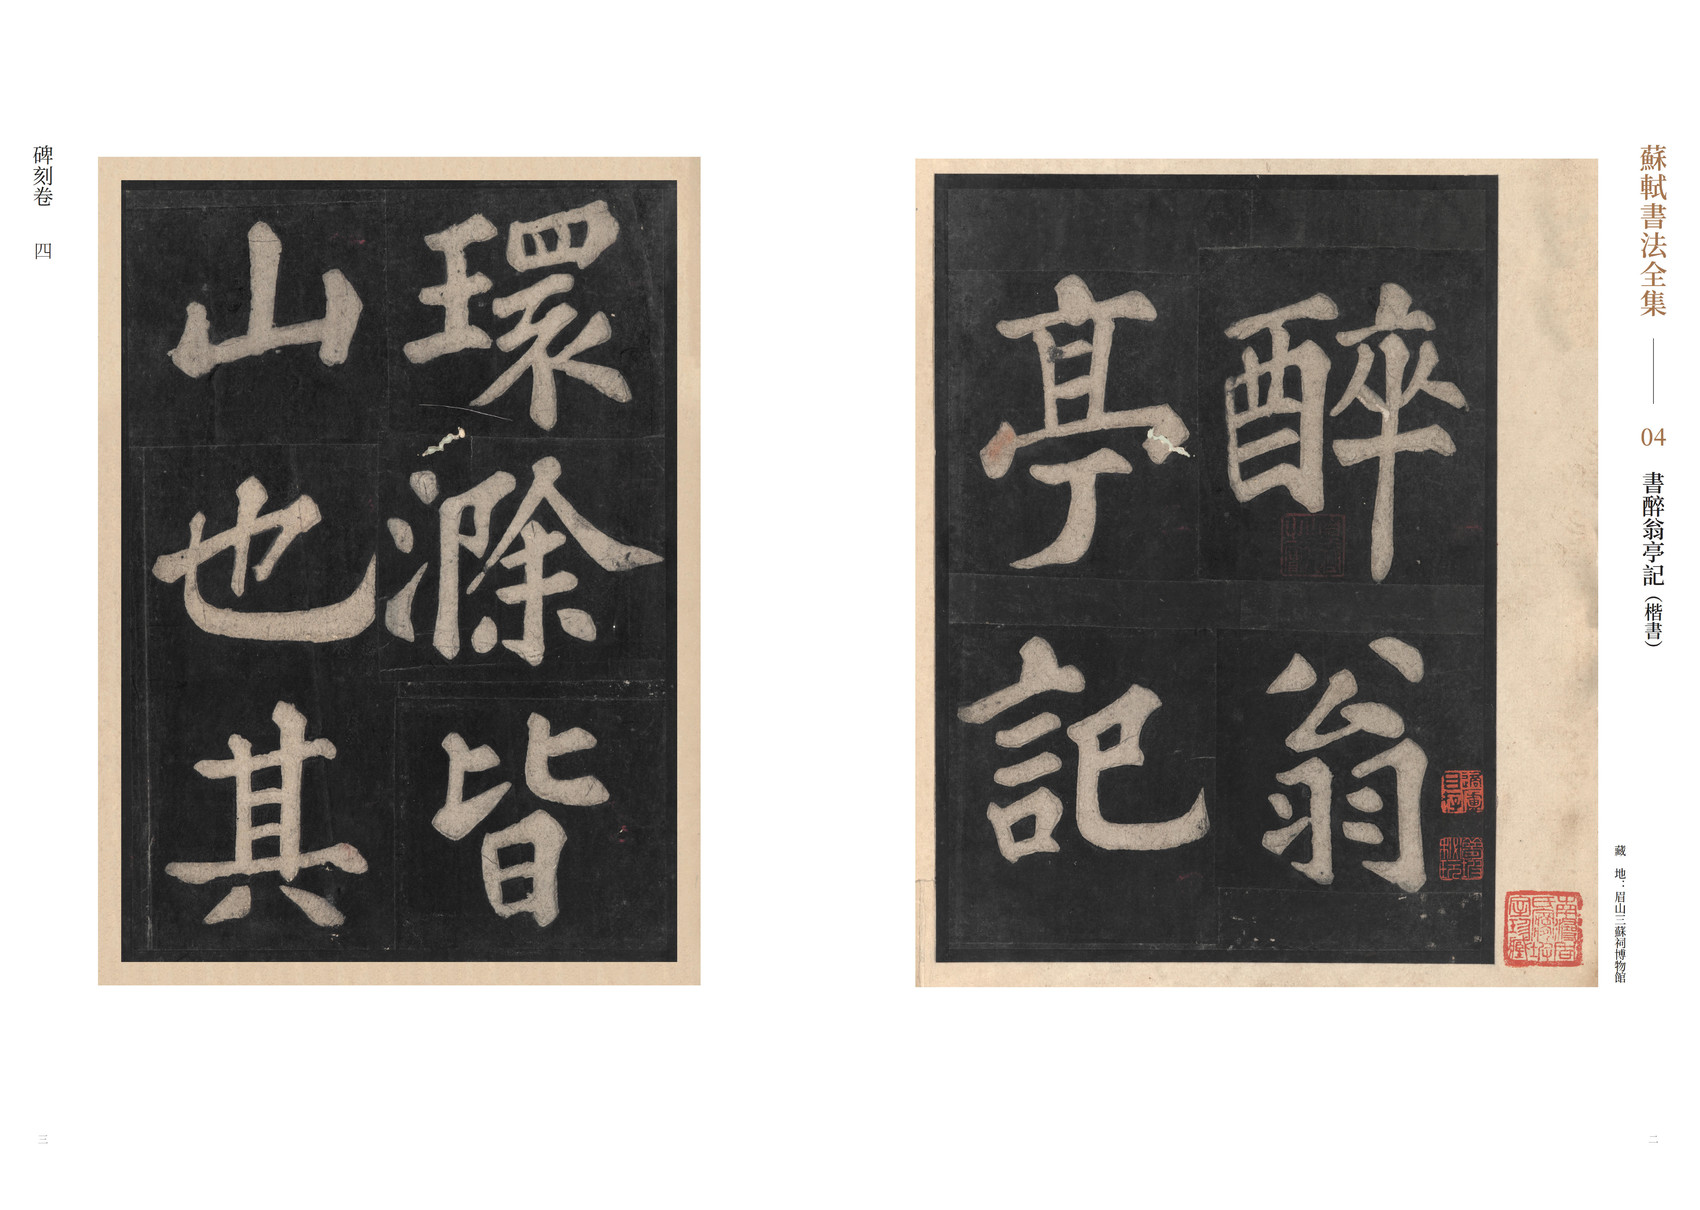 蘇軾書法全集
04
書醉翁亭記（楷書）
藏　地：眉山三蘇祠博物館
醉翁
亭記
二
環滁皆
山也其
碑刻卷　四
三